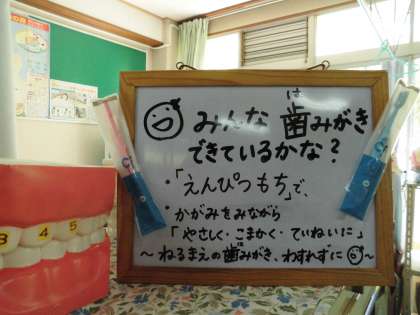 みんな歯みがき
は
できているかな?
・「えんぴつもち」で、
・かがみをみながら
「やさしく・こまかく・ていねいに」
～ねるまえの歯みがき、わすれずに～
は
3 4 5